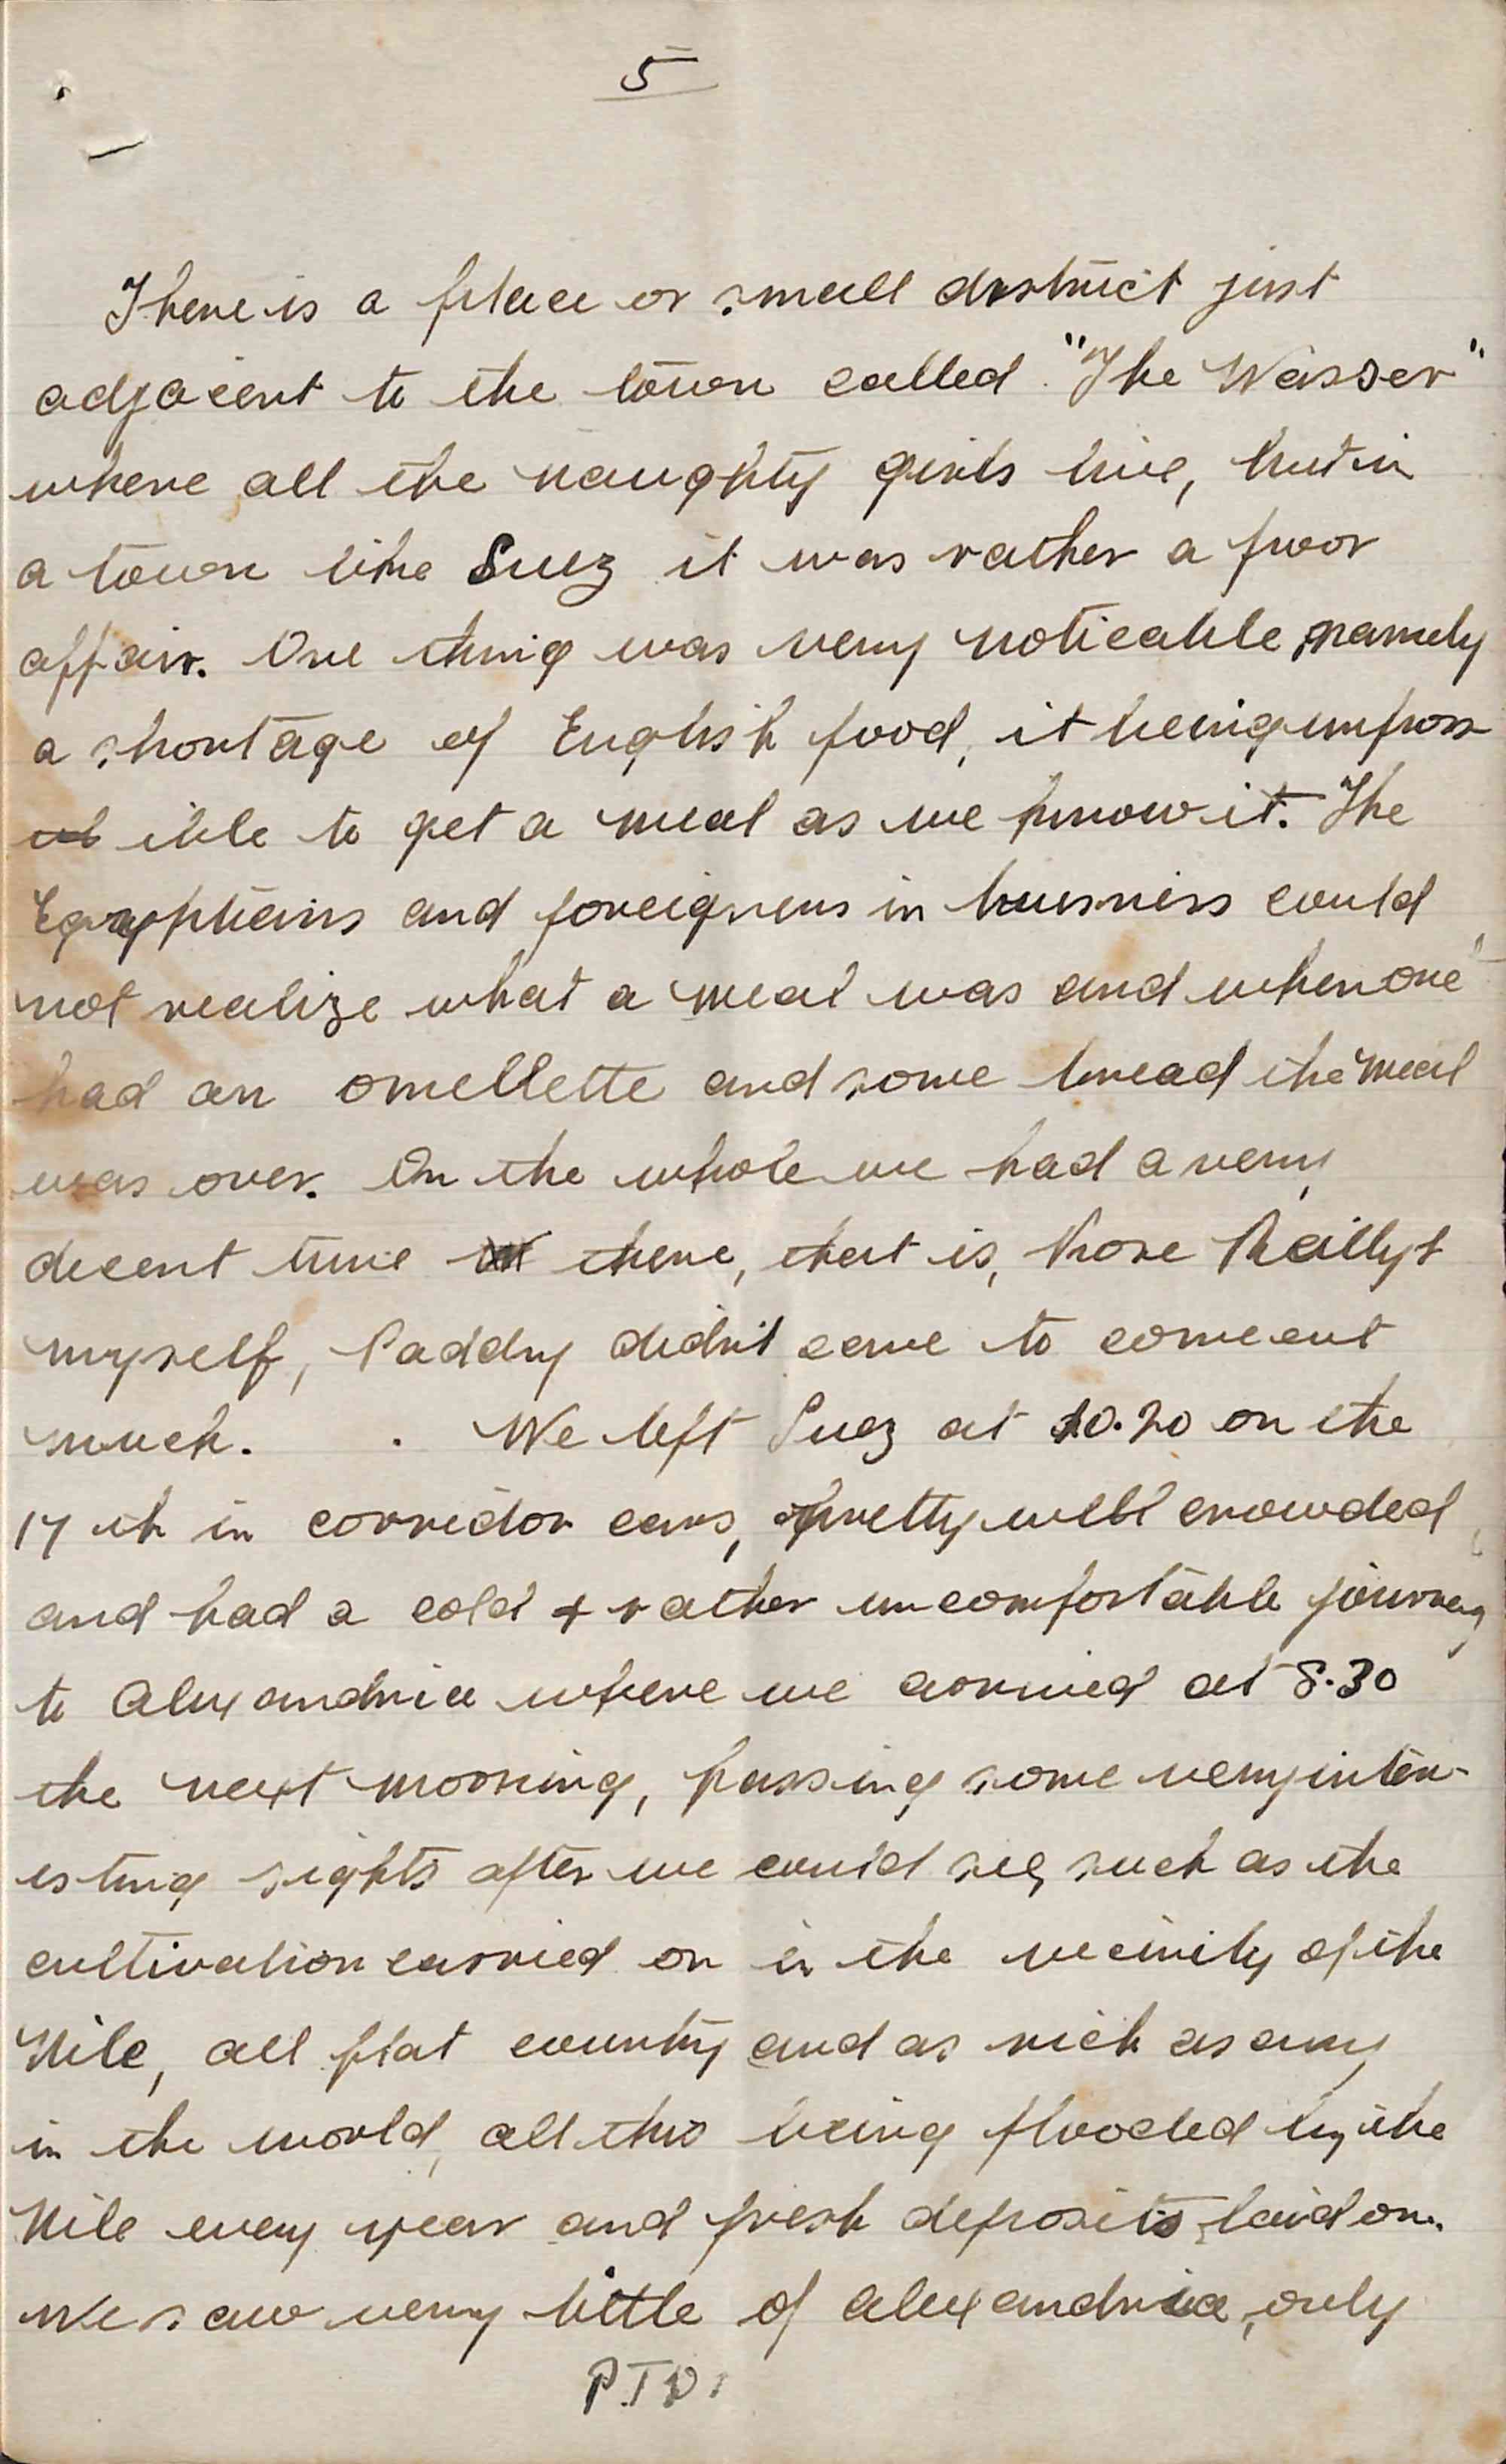 5
There is a place or small district just
adjacent to the town called "The Wasser"
where all the naughty girls live, but in
a town like Suez it was rather a poor
affair. One thing was very noticeable namely
a shortage of English food, it being imposs
ible to get a meal as we know it. The
Egyptians and foreigners in business could
not realize what a meal was and when one
had an omellette and some bread the meal
was over. On the whole we had a very
decent time there, that is, Rose Reilly &
myself, Paddy didn't come out
much. We left Suez at 10.20 on the
17th in corridor cars, pretty well crowded
and had a cold & rather uncomfortable journey
to Alexandria where we arrived at 8.30
the next morning, passing some very inter-
esting sights after we could see, such as the
cultivation carried on in the vecinity of the
Nile, all flat country and as rich as any
in the world, all this being flooded by the
Nile every year and fresh deposits laid on.
We saw very little of Alexandria, only
P.T.O.